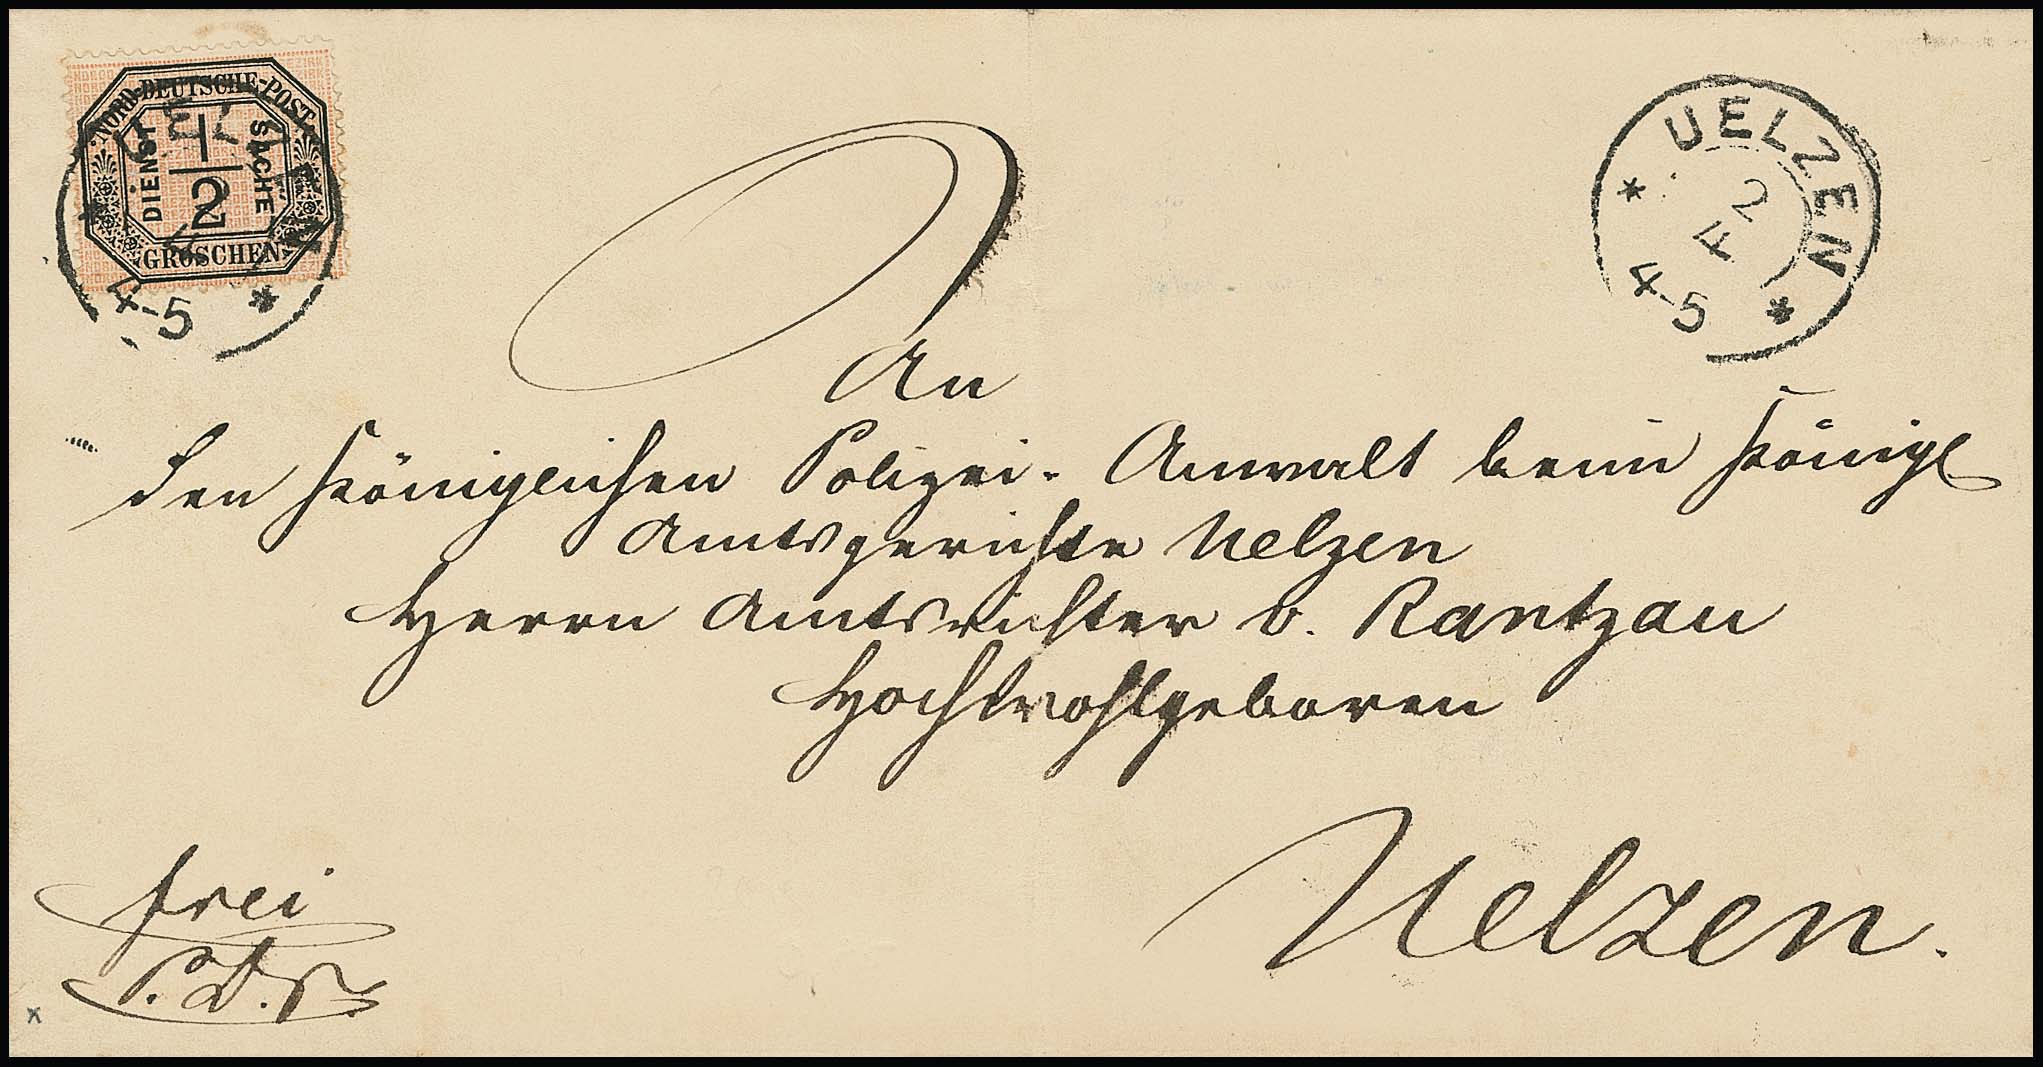 NORD-DEUTSCHE-POST
DIENST 1/2 SACHE
GROSCHEN
UELZEN
4-5
UELZEN
2
4
4-5
An
den Königlichen Polizei-Anwalt beim Königl
Amtsgerichte Uelzen
Herrn Amtsrichter v. Rantzau
Hochwohlgeboren
Uelzen.
frei